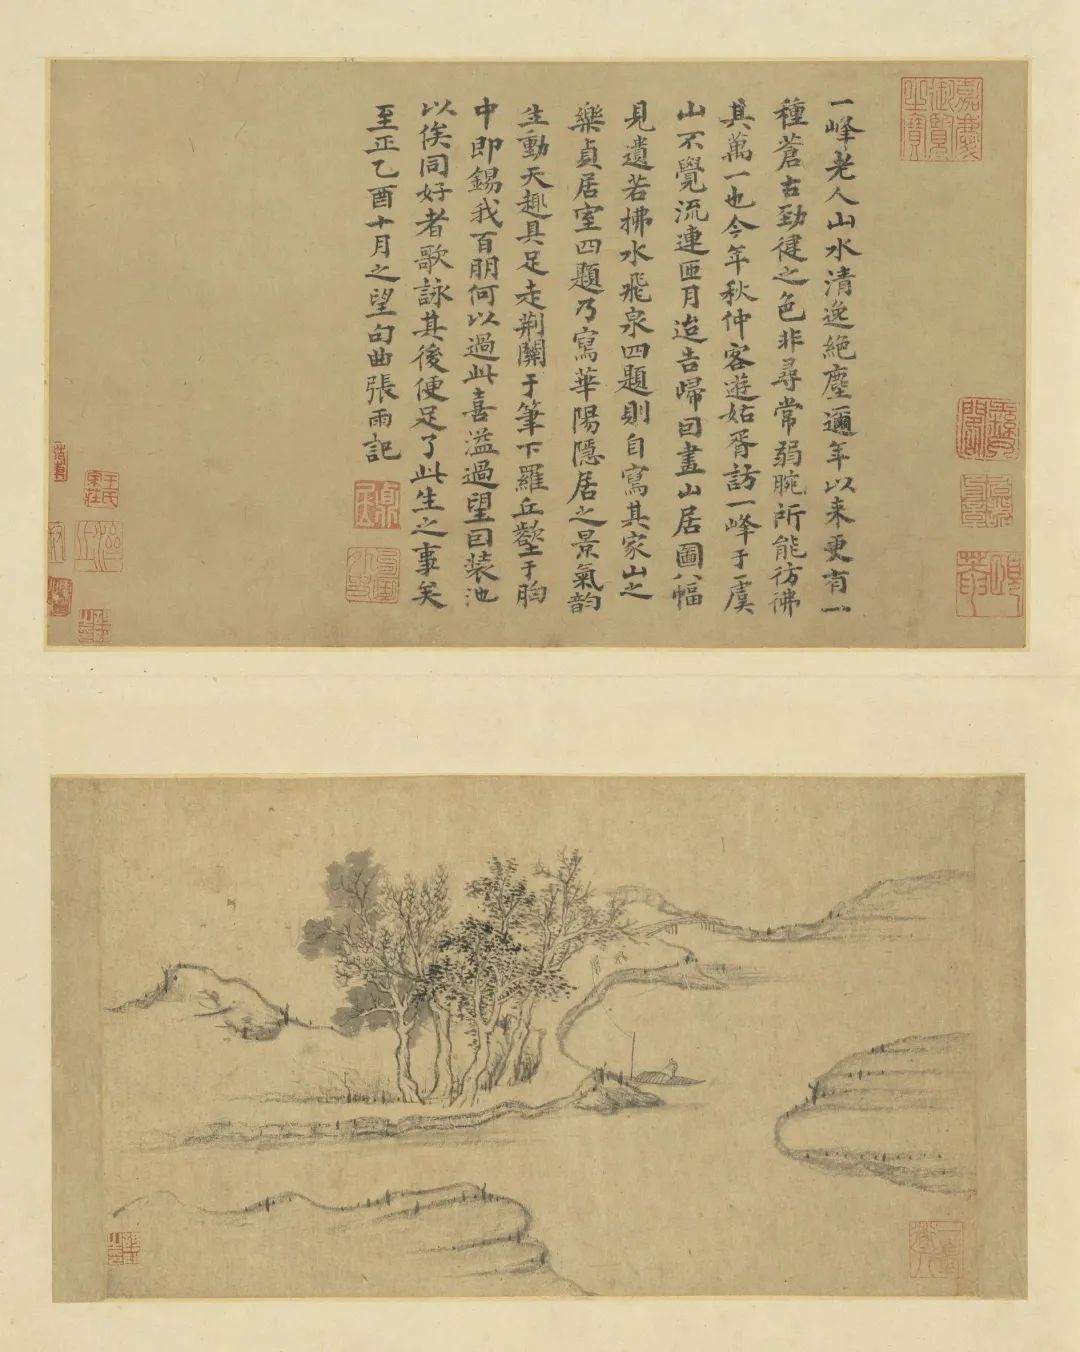 一峰老人山水清逸絕塵邇年以来更有一
種蒼古勁健之色非尋常弱腕所能彷彿
其萬一也今年秋仲客遊姑胥訪一峰于虞
山不覺流連匝月迨告歸回畫山居圖八幅
見遺若拂水飛泉四題則自寫其家山之
樂貞居室四題乃寫華陽隱居之景氣韵
生動天趣具足走荊關于筆下羅丘壑于胸
中即錫我百朋何以過此喜溢過望回装池
以俟同好者歌詠其後便足了此生之事矣
至正乙酉十月之望句曲張雨記
嘉慶御覽之寶